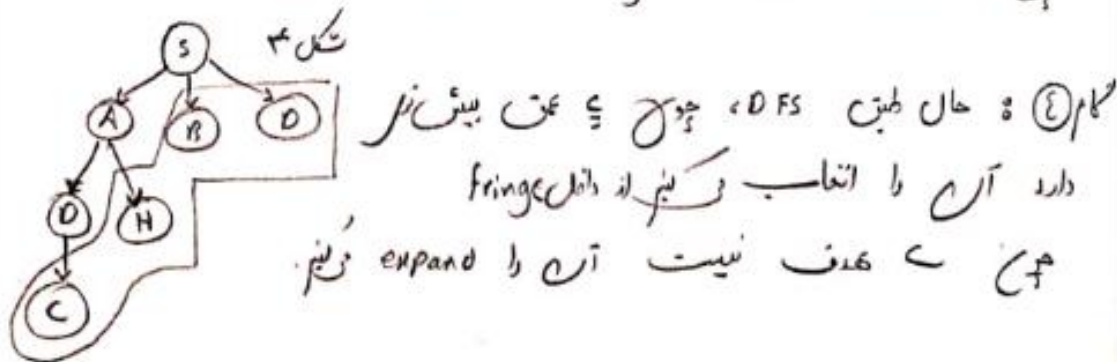 شکل ۴
S
A
B
D
D
H
C
گام ④ : حال طبق DFS، چون C عمق بیش‌تر
دارد آن را انتخاب می‌کنیم از داخل fringe
چون C هدف نیست آن را expand می‌کنیم.